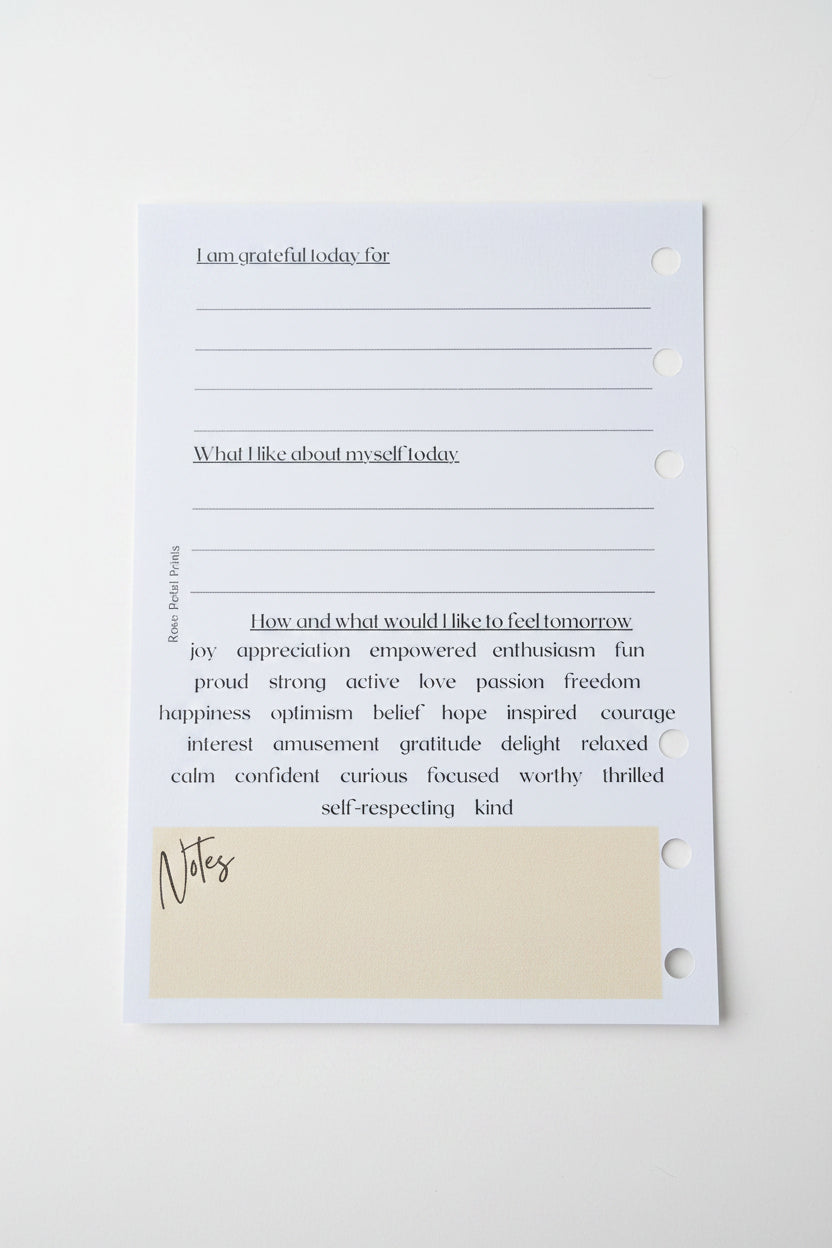 I am grateful today for
What I like about myself today
Rose Petal Prints
How and what would I like to feel tomorrow
joy appreciation empowered enthusiasm fun
proud strong active love passion freedom
happiness optimism belief hope inspired courage
interest amusement gratitude delight relaxed
calm confident curious focused worthy thrilled
self-respecting kind
Notes